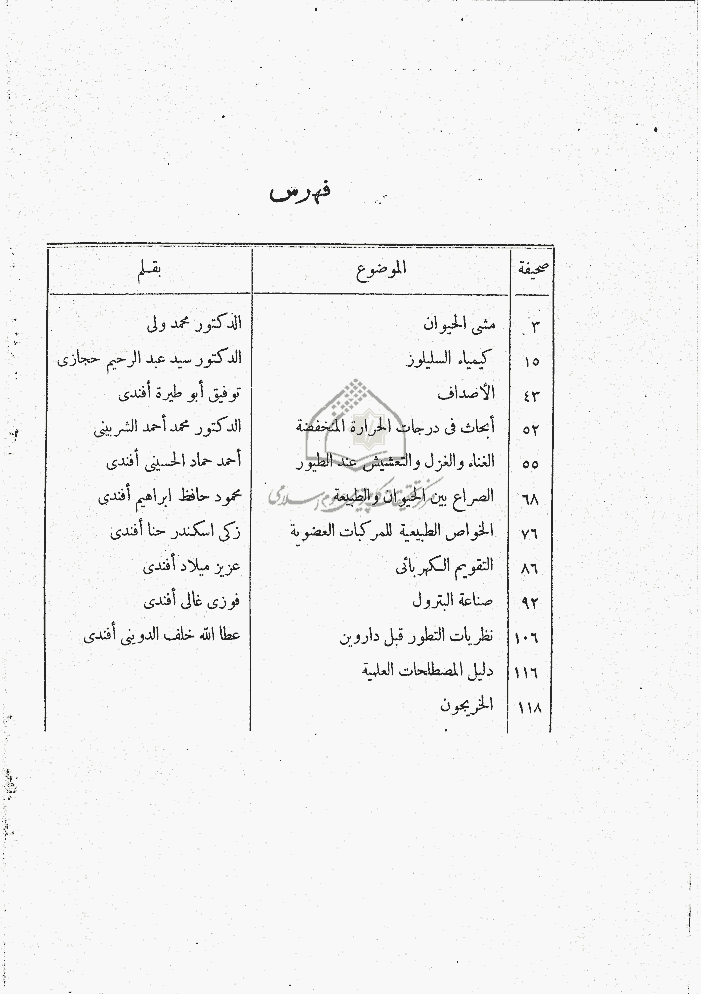 فهرس
صحيفة الموضوع بقلم
٣ مشى الحيوان الدكتور محمد ولى
١٥ كيمياء السليلوز الدكتور سيد عبد الرحيم حجازى
٤٣ الأصداف توفيق أبو طيرة أفندى
٥٢ أبحاث فى درجات الحرارة المنخفضة الدكتور محمد أحمد الشربينى
٥٥ الغناء والغزل والتعشيش عند الطيور أحمد حماد الحسينى أفندى
٦٨ الصراع بين الحيوان والطبيعة محمود حافظ ابراهيم أفندى
٧٦ الخواص الطبيعية للمركبات العضوية زكى اسكندر حنا أفندى
٨٦ التقويم الكهربائى عزيز ميلاد أفندى
٩٢ صناعة البترول فوزى غالى أفندى
١٠٦ نظريات التطور قبل داروين عطا الله خلف الدوينى أفندى
١١٦ دليل المصطلحات العلمية
١١٨ الخريجون